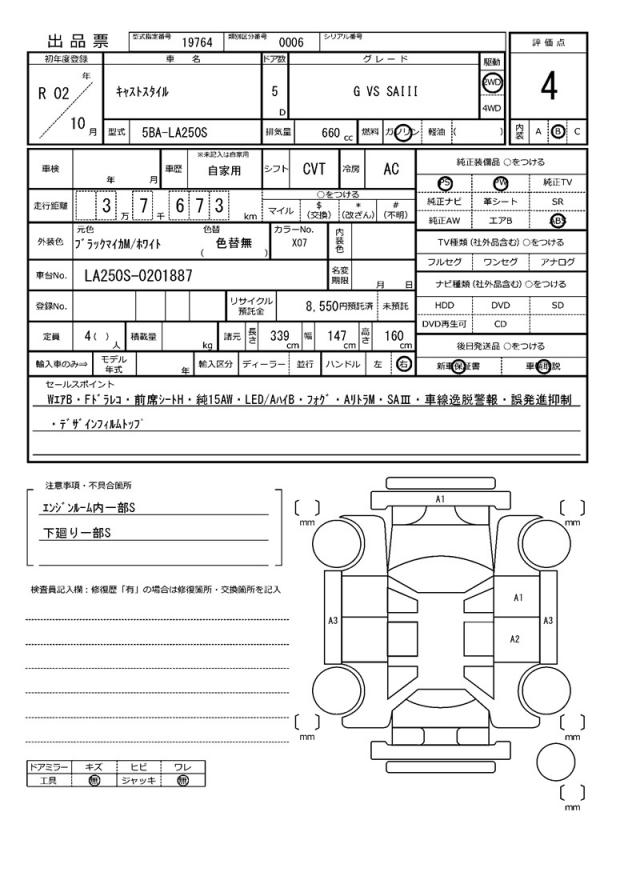 出品票 型式指定番号 19764 類別区分番号 0006 シリアル番号
評価点
4
初年度登録 車名 ドア数 グレード 駆動
R 02 年 10 月
ｷｬｽﾄｽﾀｲﾙ 5 D G VS SAIII 2WD
4WD
型式 5BA-LA250S 排気量 660 cc 燃料 ガソリン 軽油 ( )
内装 A B C
車検 年 月 車歴 ※未記入は自家用 自家用 シフト CVT 冷房 AC
走行距離 3 万 7 千 6 7 3 km
○をつける
マイル $(交換) *(改ざん) #(不明)
外装色 元色 ﾌﾞﾗｯｸマイカM/ホワイト 色替 ( 色替無 ) カラーNo. X07 内装色
車台No. LA250S-0201887 名変期限 月 日
登録No. リサイクル預託金 8,550円預託済 未預託
定員 4( )人 積載量 kg 諸元 長さ 339 cm 幅 147 cm 高さ 160 cm
輸入車のみ⇒ モデル年式 年 輸入区分 ディーラー 並行 ハンドル 左 右
純正装備品 ○をつける
PS PW 純正TV
純正ナビ 革シート SR
純正AW エアB ABS
TV種類(社外品含む)○をつける
フルセグ ワンセグ アナログ
ナビ種類(社外品含む)○をつける
HDD DVD SD
DVD再生可 CD
後日発送品 ○をつける
新車保証書 車輌取説
セールスポイント
WｴｱB・Fﾄﾞﾗﾚｺ・前席ｼｰﾄH・純15AW・LED/AﾊｲB・ﾌｫｸﾞ・AﾘﾄﾗM・SAⅢ・車線逸脱警報・誤発進抑制
・ﾃﾞｻﾞｲﾝﾌｨﾙﾑﾄｯﾌﾟ
注意事項・不具合箇所
ｴﾝｼﾞﾝﾙｰﾑ内一部S
下廻り一部S
検査員記入欄：修復歴「有」の場合は修復箇所・交換箇所を記入
A1
[ ] mm
[ ] mm
A1
A3
A2
A3
[ ] mm
[ ] mm
[ ] mm
ドアミラー キズ ヒビ ワレ
工具 無 ジャッキ 無